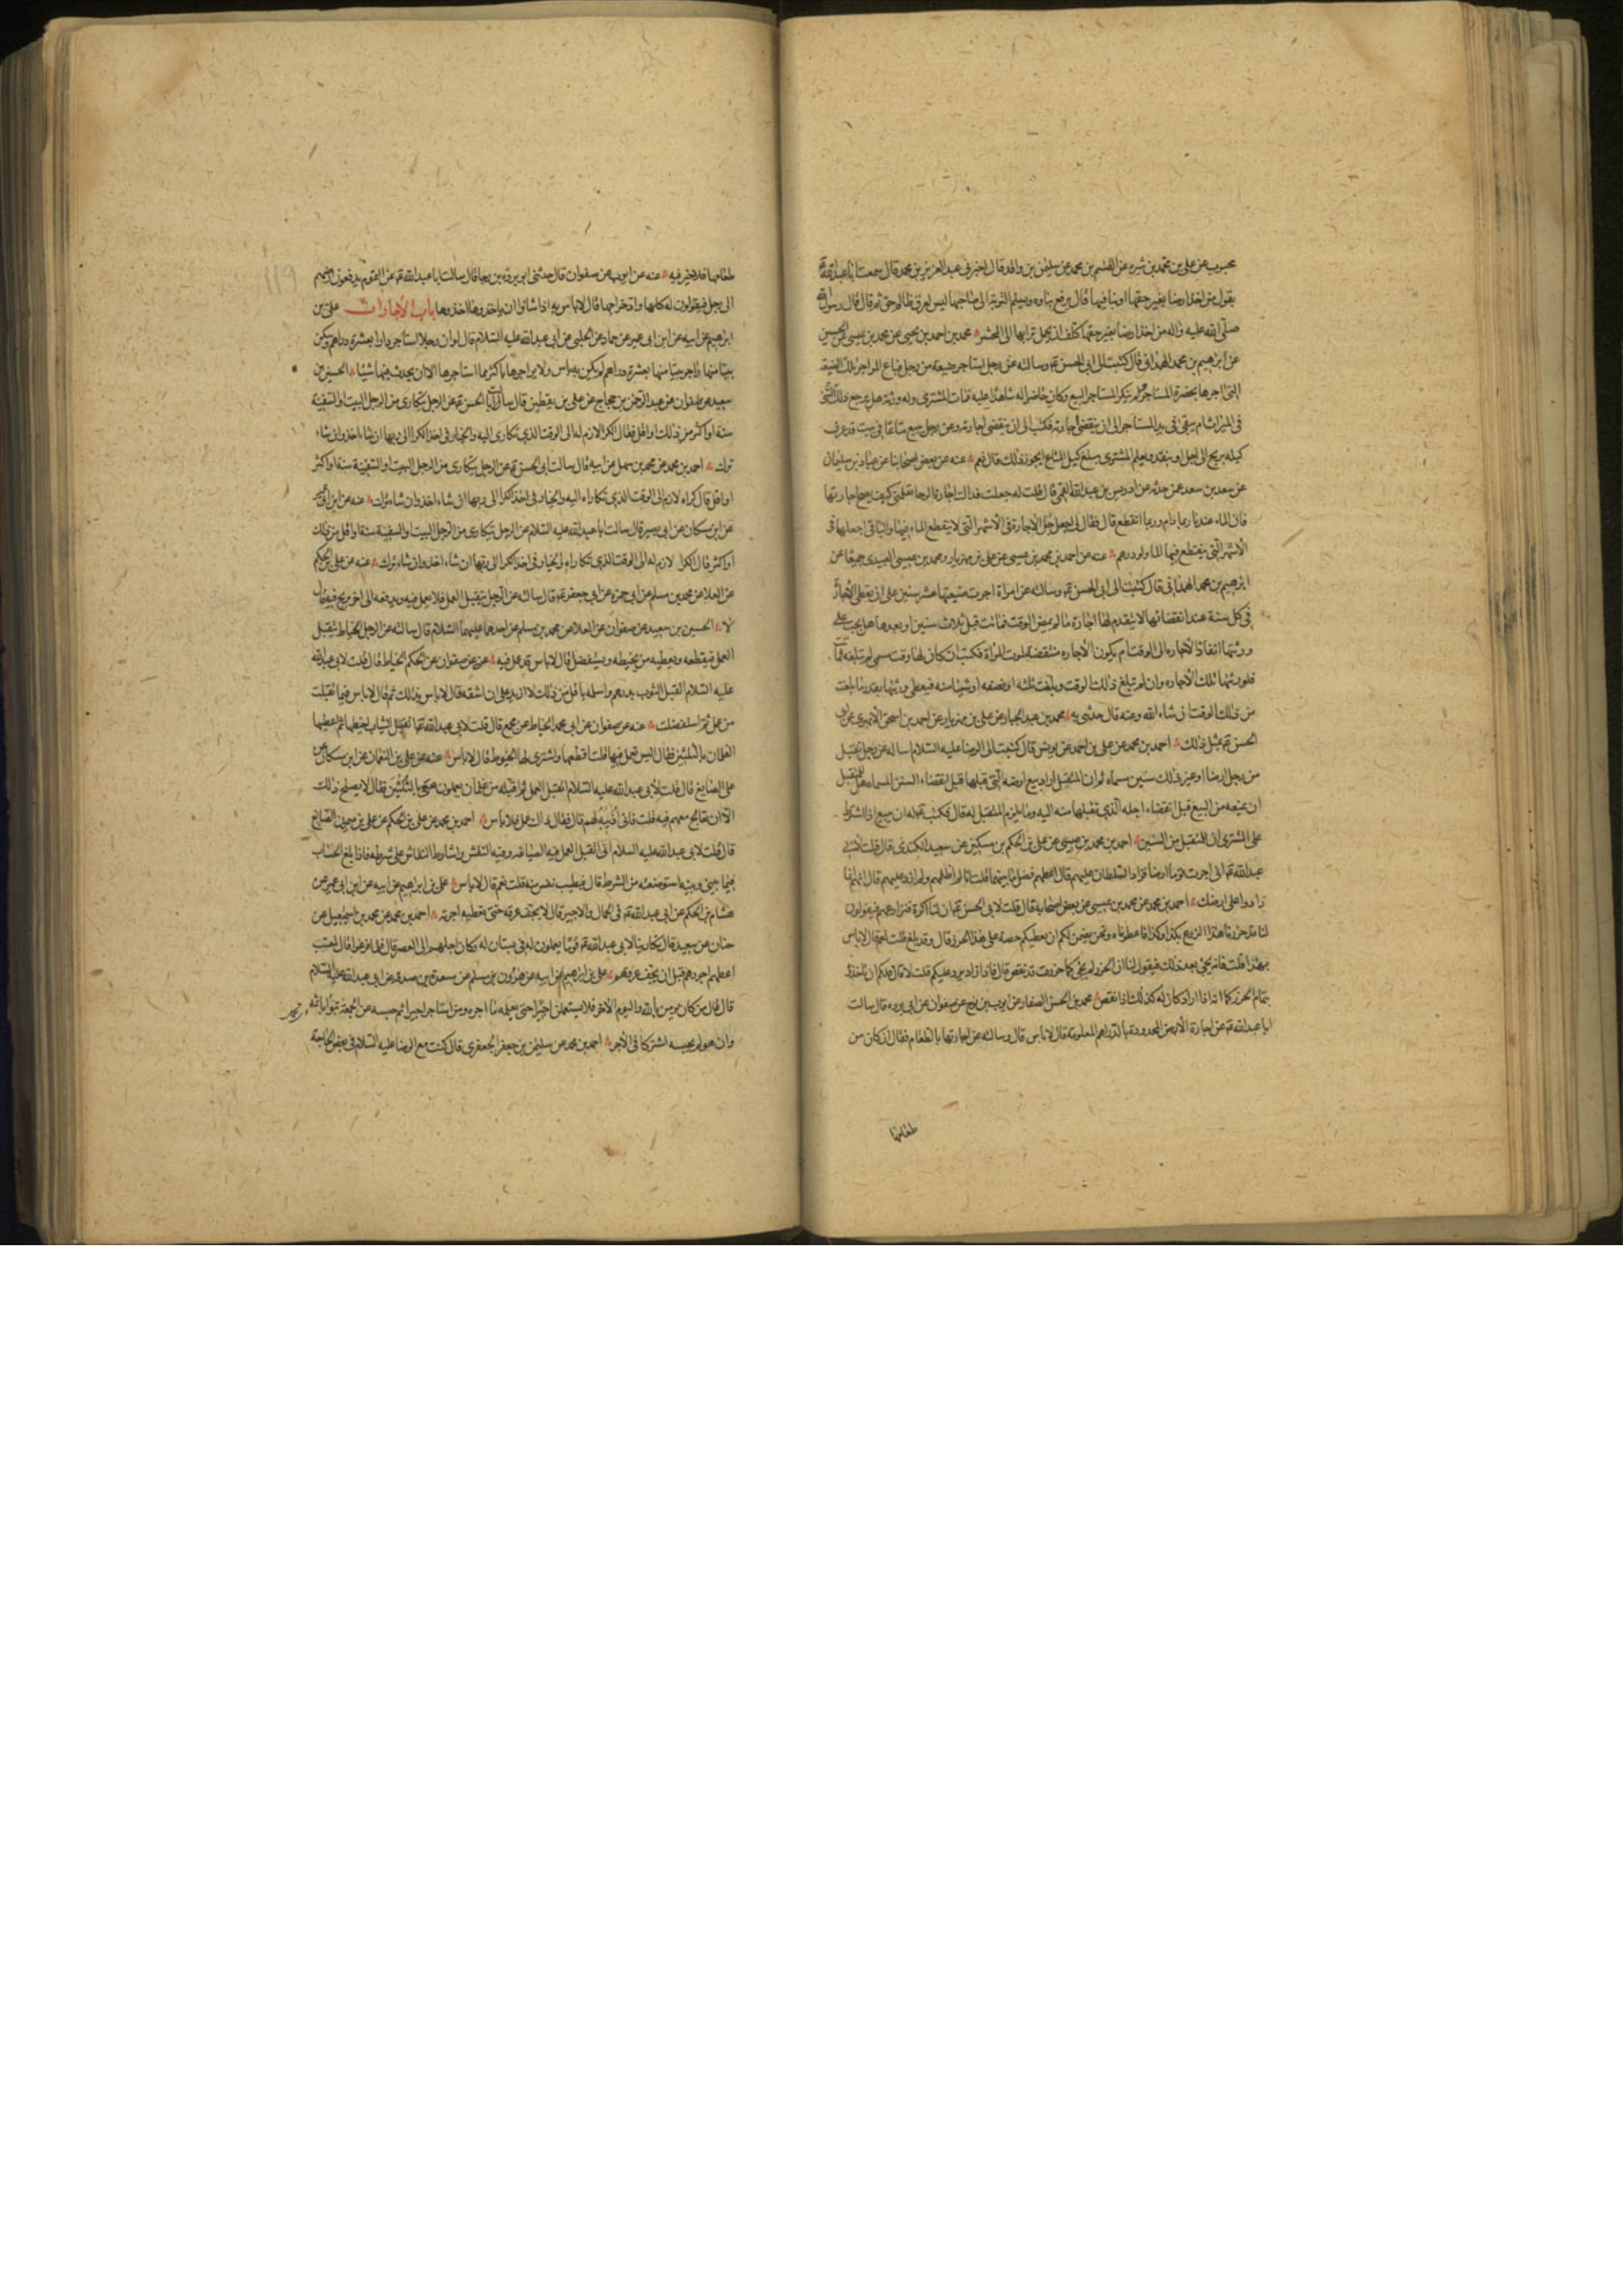 محبوب عن علي بن محمد بن شيره عن القسم بن محمد عن سليمن بن واقد قال اخبرني عبد العزيز بن محمد قال سمعت ابا عبد الله
يقول من اخذ ارضا بغير حقها او بنا فيها قال يرفع بناوه ويسلم التربة الى صاحبها ليس لعرق ظالم حق ثم قال قال رسول الله
صلى الله عليه واله من اخذ ارضا بغير حقها كلف ان يحمل ترابها الى المحشر محمد بن احمد بن يحيى عن محمد بن عيسى عن الحسين
عن ابرهيم بن محمد الهمداني قال كتبت الى ابي الحسن وسالته عن رجل استاجر ضيعة من رجل فباع المواجر تلك الضيعة
التي اجرها بحضرة المستاجر ولم ينكر المستاجر البيع وكان حاضرا له شاهدا عليه فمات المشتري وله ورثة هل يرجع ذلك الشئ
في الميراث ام يبقى في يد المستاجر الى ان ينقضي اجارته فكتب الى ان ينقضي اجارته وعن رجل يبيع متاعا في بيت قد عرف
كيله بربح الى اجل او بنقد ويعلم المشتري مبلغ كيل المتاع ايجوز ذلك قال نعم عنه عن بعض اصحابنا عن عباد بن سليمان
عن سعد بن سعد عمن حدثه عن ادريس بن عبد الله القمي قال قلت له جعلت فداك اجارة الرحا تعلمني كيف يصح اجارتها
فان الماء عندنا ربما دام وربما انقطع قال فقال لي اجعل جل الاجارة في الاشهر التي لا ينقطع الماء فيها والباقي اجعلها في
الاشهر التي ينقطع فيها الماء ولو درهم عنه عن احمد بن محمد بن عيسى عن علي بن مهزيار ومحمد بن عيسى العبيدي جميعا عن
ابرهيم بن محمد الهمداني قال كتبت الى ابي الحسن وسالته عن امراة اجرت ضيعتها عشر سنين على ان يعطى الاجارة
في كل سنة عند انقضائها لا يقدم لها اجارة ما لم يمض الوقت فماتت قبل ثلاث سنين او بعدها هل يجب على
ورثتها انفاذ الاجاره الى الوقت ام يكون الاجاره منتقضة لموت المراة فكتب ان كان لها وقت مسمى لم تبلغه
فلورثتها تلك الاجاره وان لم تبلغ ذلك الوقت وبلغت ثلثه او نصفه او شيئا منه فيعطى ورثتها بقدر ما بلغت
من ذلك الوقت ان شاء الله وعنه قال حدثني به محمد بن عبد الجبار عن علي بن مهزيار عن احمد بن اسحق الابهري عن ابي
الحسن بمثل ذلك احمد بن محمد عن علي بن احمد عن يونس قال كتبت الى الرضا عليه السلام اساله عن رجل تقبل
من رجل ارضا او غير ذلك سنين مسماه ثم ان المقبل اراد بيع ارضه التي قبلها قبل انقضاء السنين المسماه هل للمتقبل
ان يمنعه من البيع قبل انقضاء اجله الذي تقبلها منه اليه وما يلزم المتقبل له قال فكتب له ان يبيع اذا اشترط
على المشتري ان للمتقبل من السنين احمد بن محمد بن عيسى عن علي بن الحكم بن مسكين عن سعيد الكندي قال قلت لابي
عبد الله اني اجرت قوما ارضا فزاد السلطان عليهم قال اعطهم فضل ما بينهما قلت انا لم اظلمهم ولم ازد عليهم قال انهم انما
زادوا على ارضك احمد بن محمد عن محمد بن عيسى عن بعض اصحابه قال قلت لابي الحسن ان لنا اكرة فنزارعهم فيقولون
لنا قد حزرنا هذا الزرع بكذا وكذا فاعطوناه ونحن نضمن لكم ان نعطيكم حصة على هذا الحرز قال وقد بلغ قلت نعم قال لا باس
بهذا قلت فانه يجئ بعد ذلك فيقول لنا ان الحزر لم يجئ كما حزرت قد نقص قال فاذا زاد يرد عليكم قلت لا قال فلكم ان تاخذوه
بتمام الحرز كما انه اذا زاد كان له كذلك اذا نقص محمد بن الحسن الصفار عن ايوب بن نوح عن صفوان عن ابي برده قال سالت
ابا عبد الله عن اجارة الارض المحدودة بالدراهم المعلومة قال لا باس قال وسالته عن اجارتها بالطعام فقال ان كان من
طعامها
طعامها فلا خير فيه عنه عن ايوب عن صفوان قال حدثني ابو بردة بن رجا قال سالت ابا عبد الله عن القوم يدفعون ارضهم
الى رجل فيقولون له كلها واد خراجها قال لا باس به اذا شاؤا ان ياخذوها اخذوها باب الاجارات علي بن
ابراهيم عن ابيه عن ابن ابي عمير عن حماد عن الحلبي عن ابي عبد الله عليه السلام قال لو ان رجلا استاجر دارا بعشرة دراهم وسكن
بيتا منها واجر بيتا منها بعشرة دراهم لم يكن به باس ولا يواجرها باكثر مما استاجرها الا ان يحدث فيها شيئا الحسين بن
سعيد عن صفوان عن عبد الرحمن بن حجاج عن علي بن يقطين قال سالت ابا الحسن عن الرجل يتكارى من الرجل البيت والسفينة
سنة او اكثر من ذلك او اقل فقال الكرا لازم له الى الوقت الذي تكارى اليه والخيار في اخذ الكرا الى ربها ان شاء اخذ وان شاء
ترك احمد بن محمد عن محمد بن سهل عن ابيه قال سالت ابي الحسن عن الرجل يتكارى من الرجل البيت والسفينة سنة او اكثر
او اقل قال كراه لازم الى الوقت الذي تكاراه اليه والخيار في اخذ الكرا الى ربها ان شاء اخذ وان شاء ترك عنه عن ابن
عن ابن مسكان عن ابي بصير قال سالت ابا عبد الله عليه السلام عن الرجل يتكارى من الرجل البيت والسفينة سنة او اقل من ذلك
او اكثر قال الكرا لازم له الى الوقت الذي تكاراه والخيار في اخذ الكرا الى ربها ان شاء اخذ وان شاء ترك عنه عن علي بن الحكم
عن العلا عن محمد بن مسلم عن ابي حمزه عن ابي جعفر قال سالته عن الرجل يتقبل العمل فلا يعمل فيه ويدفعه الى اخر يربح فيه قال
لا الحسين بن سعيد عن صفوان عن العلا عن محمد بن مسلم عن احدهما عليهما السلام قال سالته عن الرجل الخياط يتقبل
العمل فيقطعه ويعطيه من يخيطه ويستفضل قال لا باس قد عمل فيه عنه عن صفوان عن الحكم الخياط قال قلت لابي عبد الله
عليه السلام اتقبل الثوب بدرهم واسلمه باقل من ذلك لا ازيد على ان اشقه قال لا باس بذلك ثم قال لا باس فيما تقبلت
من عمل ثم استفضلت عنه عن صفوان عن ابي محمد الخياط عن مجمع قال قلت لابي عبد الله اتقبل الثياب اخيطها ثم اعطيها
الغلمان بالثلثين فقال اليس تعمل فيها قلت اقطعها واشتري لها الخيوط قال لا باس عنه عن علي بن النعمان عن ابن مسكان عن
علي الصايغ قال قلت لابي عبد الله عليه السلام اتقبل العمل ثم اقبله من غلمان يعملون معي بالثلثين فقال لا يصلح ذلك
الا ان تعالج معهم فيه قلت فاني اذيبه لهم قال فقال ذاك عمل فلا باس احمد بن محمد عن علي بن الحكم عن علي بن ميمون الصايغ
قال قلت لابي عبد الله عليه السلام اني اتقبل العمل فيه الصياغه وفيه النقش واشارط النقاش على شرطه فاذا بلغ الحساب
فيما بيني وبينه استوضعته من الشرط قال فبطيب نفس منه قلت نعم قال لا باس علي بن ابراهيم عن ابيه عن ابن ابي عمير عن
هشام بن الحكم عن ابي عبد الله في الحمال والاجير قال لا يجف عرقه حتى تعطيه اجرته احمد بن محمد عن محمد بن اسمعيل عن
حنان عن سعيد قال تكارينا لابي عبد الله قوما يعملون له في بستان له وكان اجلهم الى العصر قال فلما فرغوا قال لمعتب
اعطهم اجورهم قبل ان يجف عرقهم علي بن ابرهيم عن ابيه عن هرون بن مسلم عن مسعدة بن صدقة عن ابي عبد الله عليه السلام
قال قال من كان يومن بالله واليوم الاخر فلا يستعملن اجيرا حتى يعلمه ما اجره ومن استاجر اجيرا ثم حبسه عن الجمعة تبوا باثمه
وان هو لم يحبسه اشتركا في الاجر احمد بن محمد عن سليمن بن جعفر الجعفري قال كنت مع الرضا عليه السلام في بعض الحاجة
١١٩